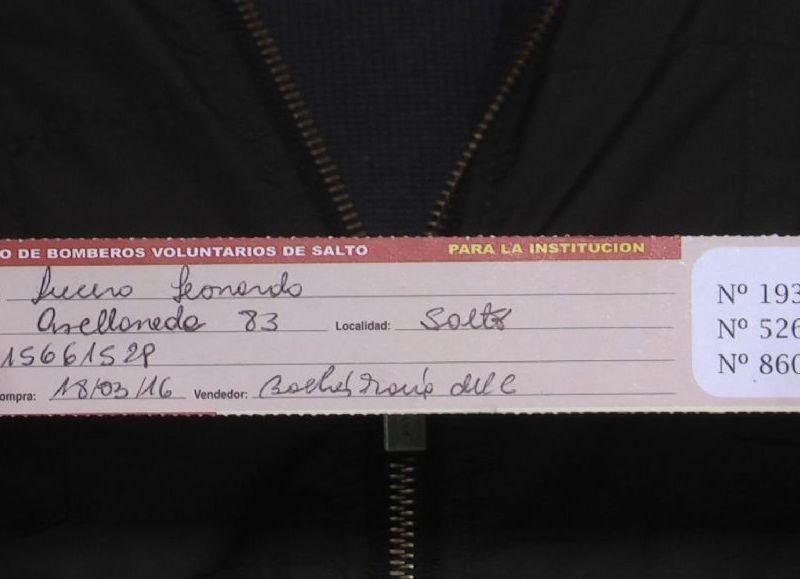 O DE BOMBEROS VOLUNTARIOS DE SALTO PARA LA INSTITUCION
Lucero Leonardo
Avellaneda 83 Localidad: Salto
15661529
ompra: 18/03/16 Vendedor:
Nº 193
Nº 526
Nº 860